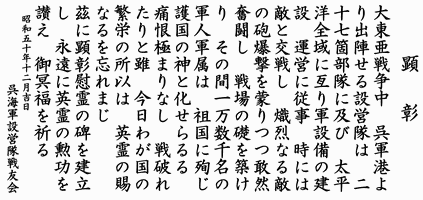 顕彰
大東亜戦争中 呉軍港よ
り出陣せる設営隊は 二
十七箇部隊に及び 太平
洋全域に亙り軍設備の建
設 運営に従事 時には
敵と交戦し 熾烈なる敵
の砲爆撃を蒙りつつ敢然
奮闘し 戦場の礎を築け
り その間一万数千名の
軍人軍属は 祖国に殉じ
護国の神と化せらるる
痛恨極まりなし 戦破れ
たりと雖 今日わが国の
繁栄の所以は 英霊の賜
なるを忘れまじ
茲に顕彰慰霊の碑を建立
し 永遠に英霊の勲功を
讃え 御冥福を祈る
昭和五十年十二月吉日
呉海軍設営隊戦友会